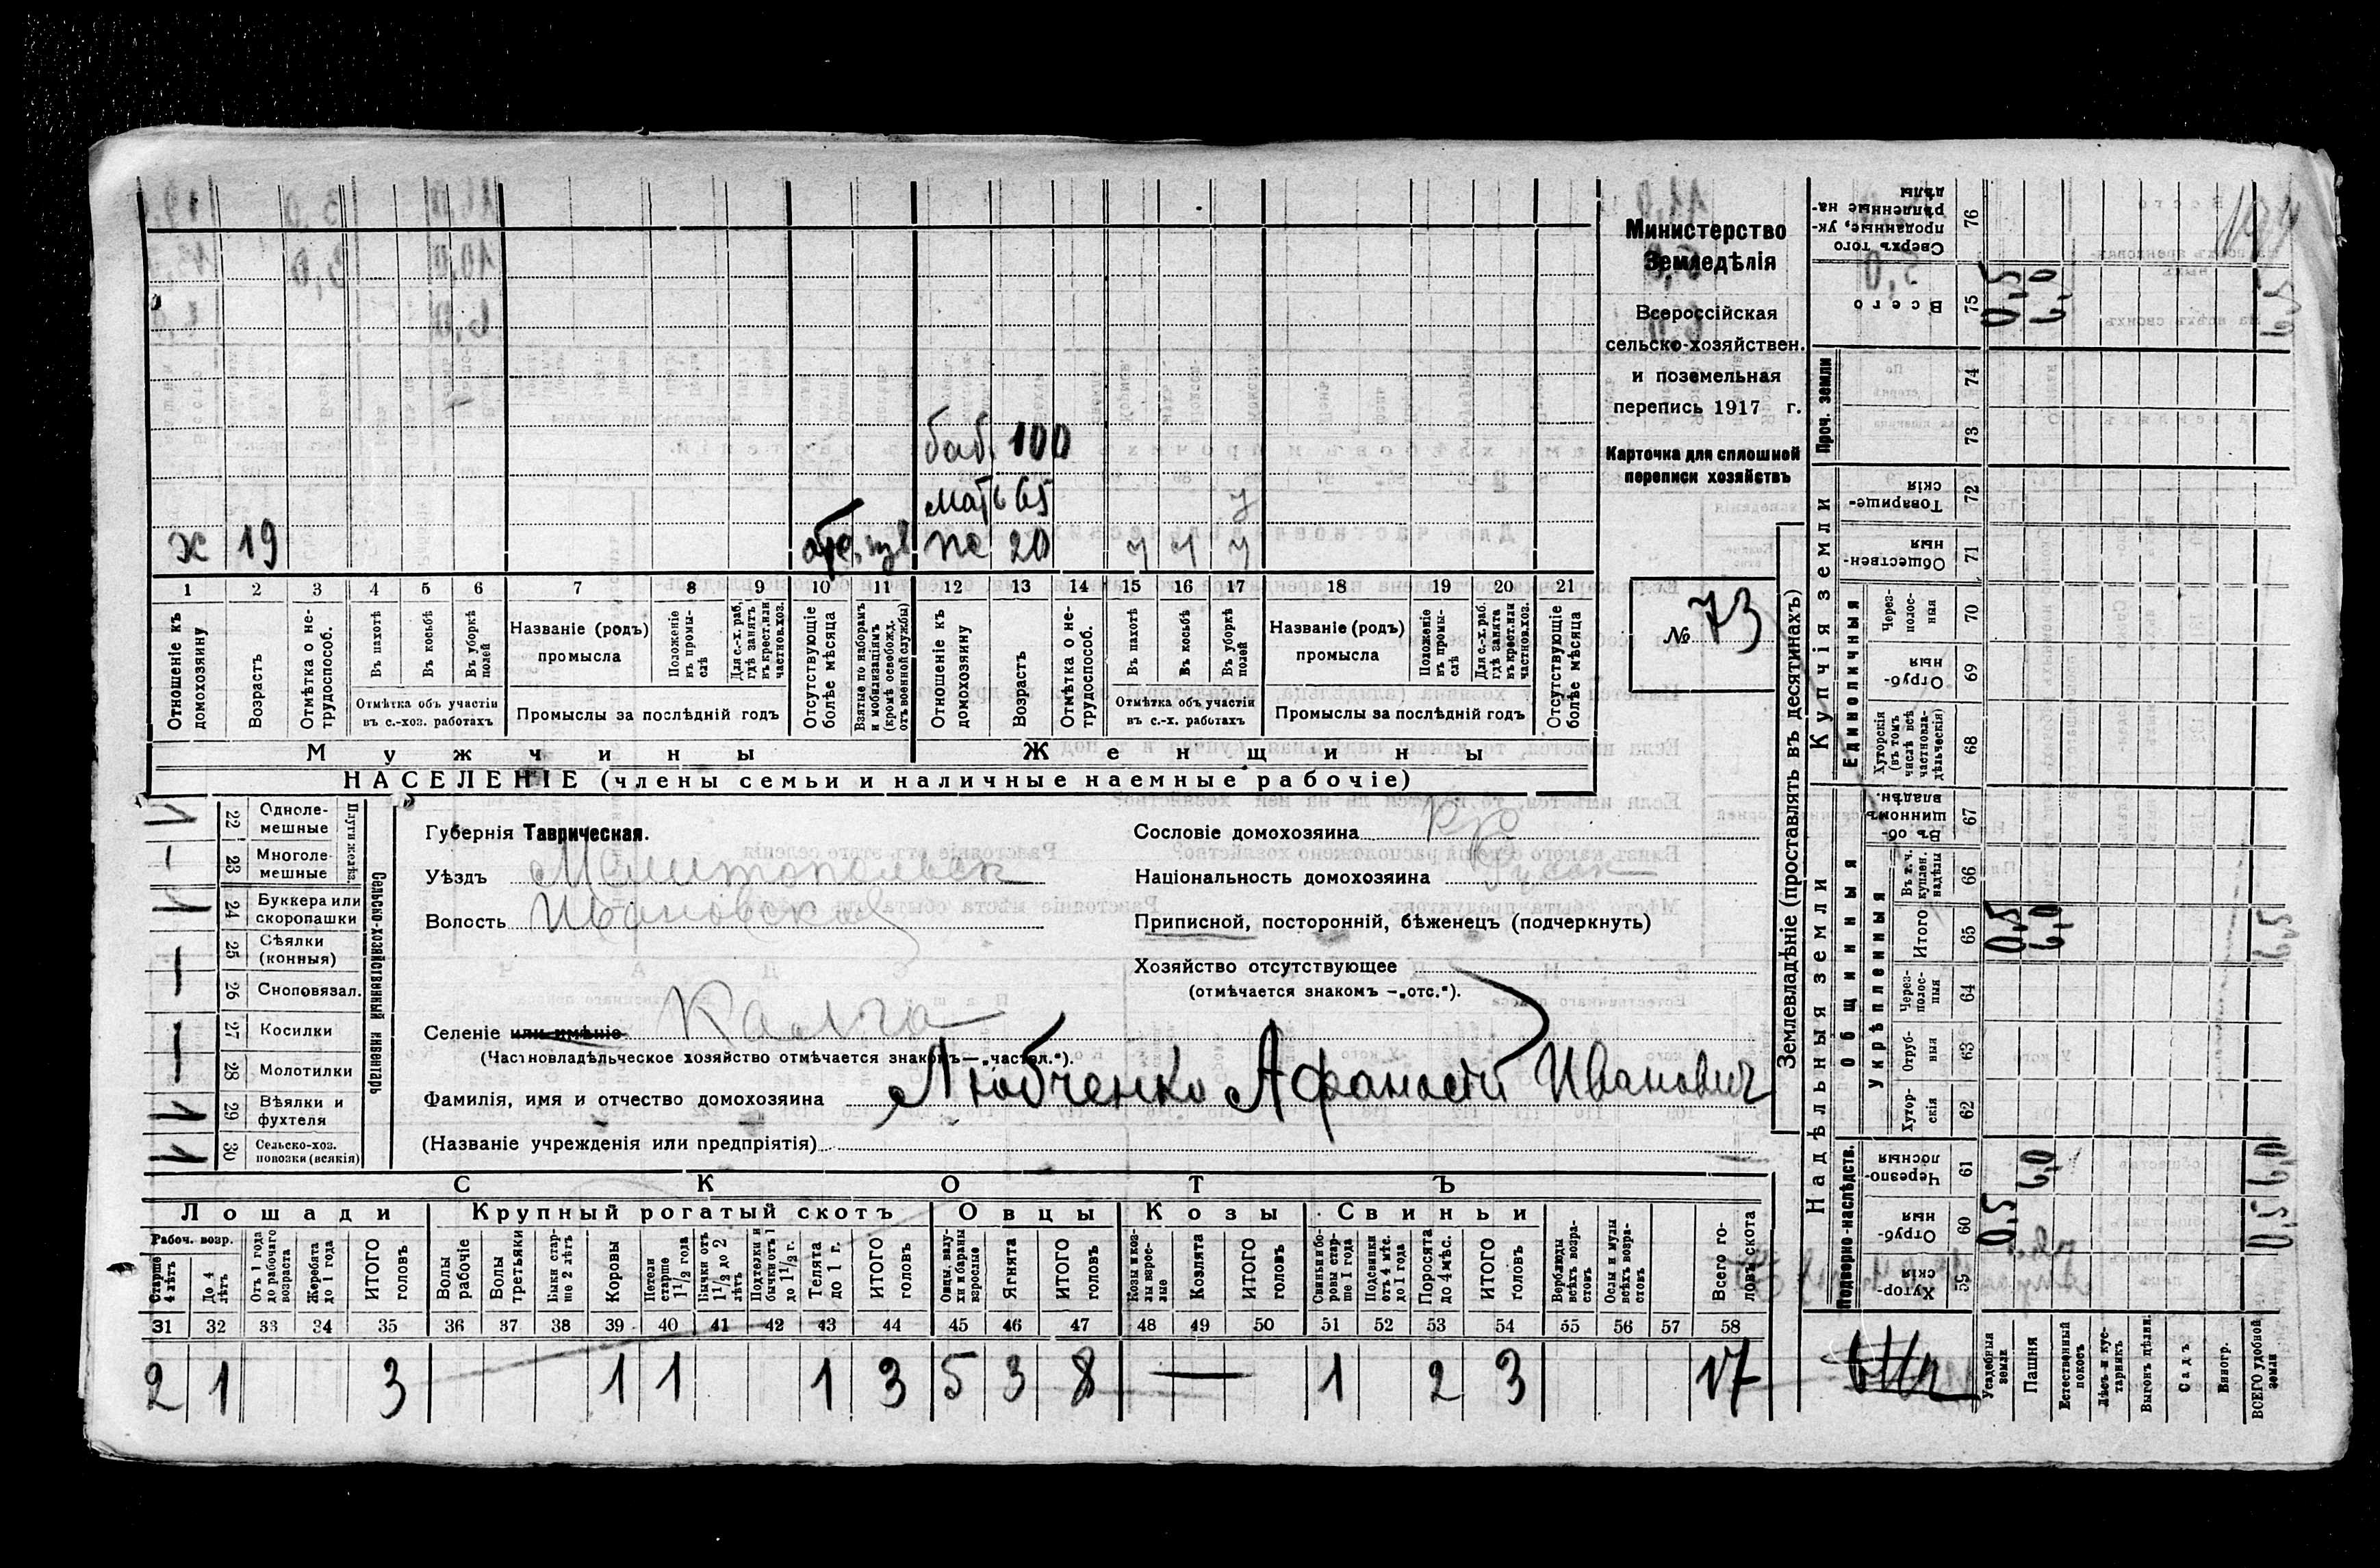 баб. 100
мать 65 у
х 19 пе 20 у у у
1 2 3 4 5 6 7 8 9 10 11 12 13 14 15 16 17 18 19 20 21
Отношеніе къ домохозяину
Возрастъ
Отмѣтка о не-трудоспособ.
Въ пахотѣ
Въ косьбѣ
Въ уборкѣ полей
Отмѣтка объ участіи въ с.-хоз. работахъ
Названіе (родъ) промысла
Положеніе въ промы-слѣ
Для с.-х. раб. гдѣ занятъ въ крест. или частнов. хоз.
Промыслы за послѣдній годъ
Отсутствующіе болѣе мѣсяца
Взятые по наборамъ и мобилизаціямъ (кромѣ освобожд. отъ военной службы)
Отношеніе къ домохозяину
Возрастъ
Отмѣтка о не-трудоспособ.
Въ пахотѣ
Въ косьбѣ
Въ уборкѣ полей
Отмѣтка объ участіи въ с.-х. работахъ
Названіе (родъ) промысла
Положеніе въ промы-слѣ
Для с.-х. раб. гдѣ занята въ крест. или частнов. хоз.
Промыслы за послѣдній годъ
Отсутствующіе болѣе мѣсяца
Мужчины Женщины
НАСЕЛЕНІЕ (члены семьи и наличные наемные рабочіе)
Министерство
Земледѣлія
Всероссійская
сельско-хозяйствен.
и поземельная
перепись 1917 г.
Карточка для сплошной
переписи хозяйствъ
№ 73
22 Одноле-мешные
23 Многоле-мешные
Плуги желѣз.
24 Буккера или скоропашки
25 Сѣялки (конныя)
26 Сноповязал.
27 Косилки
28 Молотилки
29 Вѣялки и фухтеля
30 Сельско-хоз. повозки (всякія)
Сельско-хозяйственный инвентарь
Губернія Таврическая.
Уѣздъ Мелитопольск
Волость Ивановская
Селеніе или имѣніе Калга
(Частновладѣльческое хозяйство отмѣчается знакомъ—„частвл.“).
Фамилія, имя и отчество домохозяина Любченко Афанасій Иванович
(Названіе учрежденія или предпріятія)
Сословіе домохозяина кр
Національность домохозяина Русск
Приписной, посторонній, бѣженецъ (подчеркнуть)
Хозяйство отсутствующее
(отмѣчается знакомъ —„отс.“).
СКОТЪ
Лошади Крупный рогатый скотъ Овцы Козы Свиньи
Рабоч. возр.
Старше 4 лѣтъ
До 4 лѣтъ
Отъ 1 года до рабочаго возраста
Жеребята до 1 года
ИТОГО головъ
Волы рабочіе
Волы третьяки
Быки стар-ше 2 лѣтъ
Коровы
Нетели старше 1 1/2 года
Бычки отъ 1 1/2 до 2 лѣтъ
Подтелки и бычки отъ 1 до 1 1/2 г.
Телята до 1 г.
ИТОГО головъ
Овцы, валу-хи и бараны взрослые
Ягнята
ИТОГО головъ
Козы и коз-лы взрос-лые
Козлята
ИТОГО головъ
Свиньи и бо-ровы стар-ше 1 года
Подсвинки отъ 4 мѣс. до 1 года
Поросята до 4 мѣс.
ИТОГО головъ
Верблюды всѣхъ возра-стовъ
Ослы и мулы всѣхъ возра-стовъ
Всего го-ловъ скота
31 32 33 34 35 36 37 38 39 40 41 42 43 44 45 46 47 48 49 50 51 52 53 54 55 56 57 58
2 1 3 1 1 1 3 5 3 8 — 1 2 3 17
Землевладѣніе (проставлять въ десятинахъ)
Купчія земли
Надѣльныя земли
Сверхъ того проданные, ук-рѣпленные на-дѣлы 76
Всего 75 0,5 6,0 6,5
Проч. земли
74
73
Товарище-скія 72
Обществен-ныя 71
Единоличныя
Через-полос-ныя 70
Отруб-ныя 69
Хуторскія (въ томъ числѣ всѣ частновла-дѣльческія) 68
Общинныя
Въ об-щинномъ владѣн. 67
Укрѣпленныя
Въ т. ч. куплен. надѣлы 66
Итого 65 0,5 6,0 6,5
Через-полос-ныя 64
Отруб-ныя 63
Хутор-скія 62
Подворно-наслѣдств.
Черезпо-лосныя 61 6,0 6,0
Отруб-ныя 60 0,5 0,5
Хутор-скія 59
Усадебныя земли
Пашня
Естественный покосъ
Лѣсъ и кус-тарникъ
Выгонъ дѣлин.
Садъ
Виногр.
ВСЕГО удобной земли